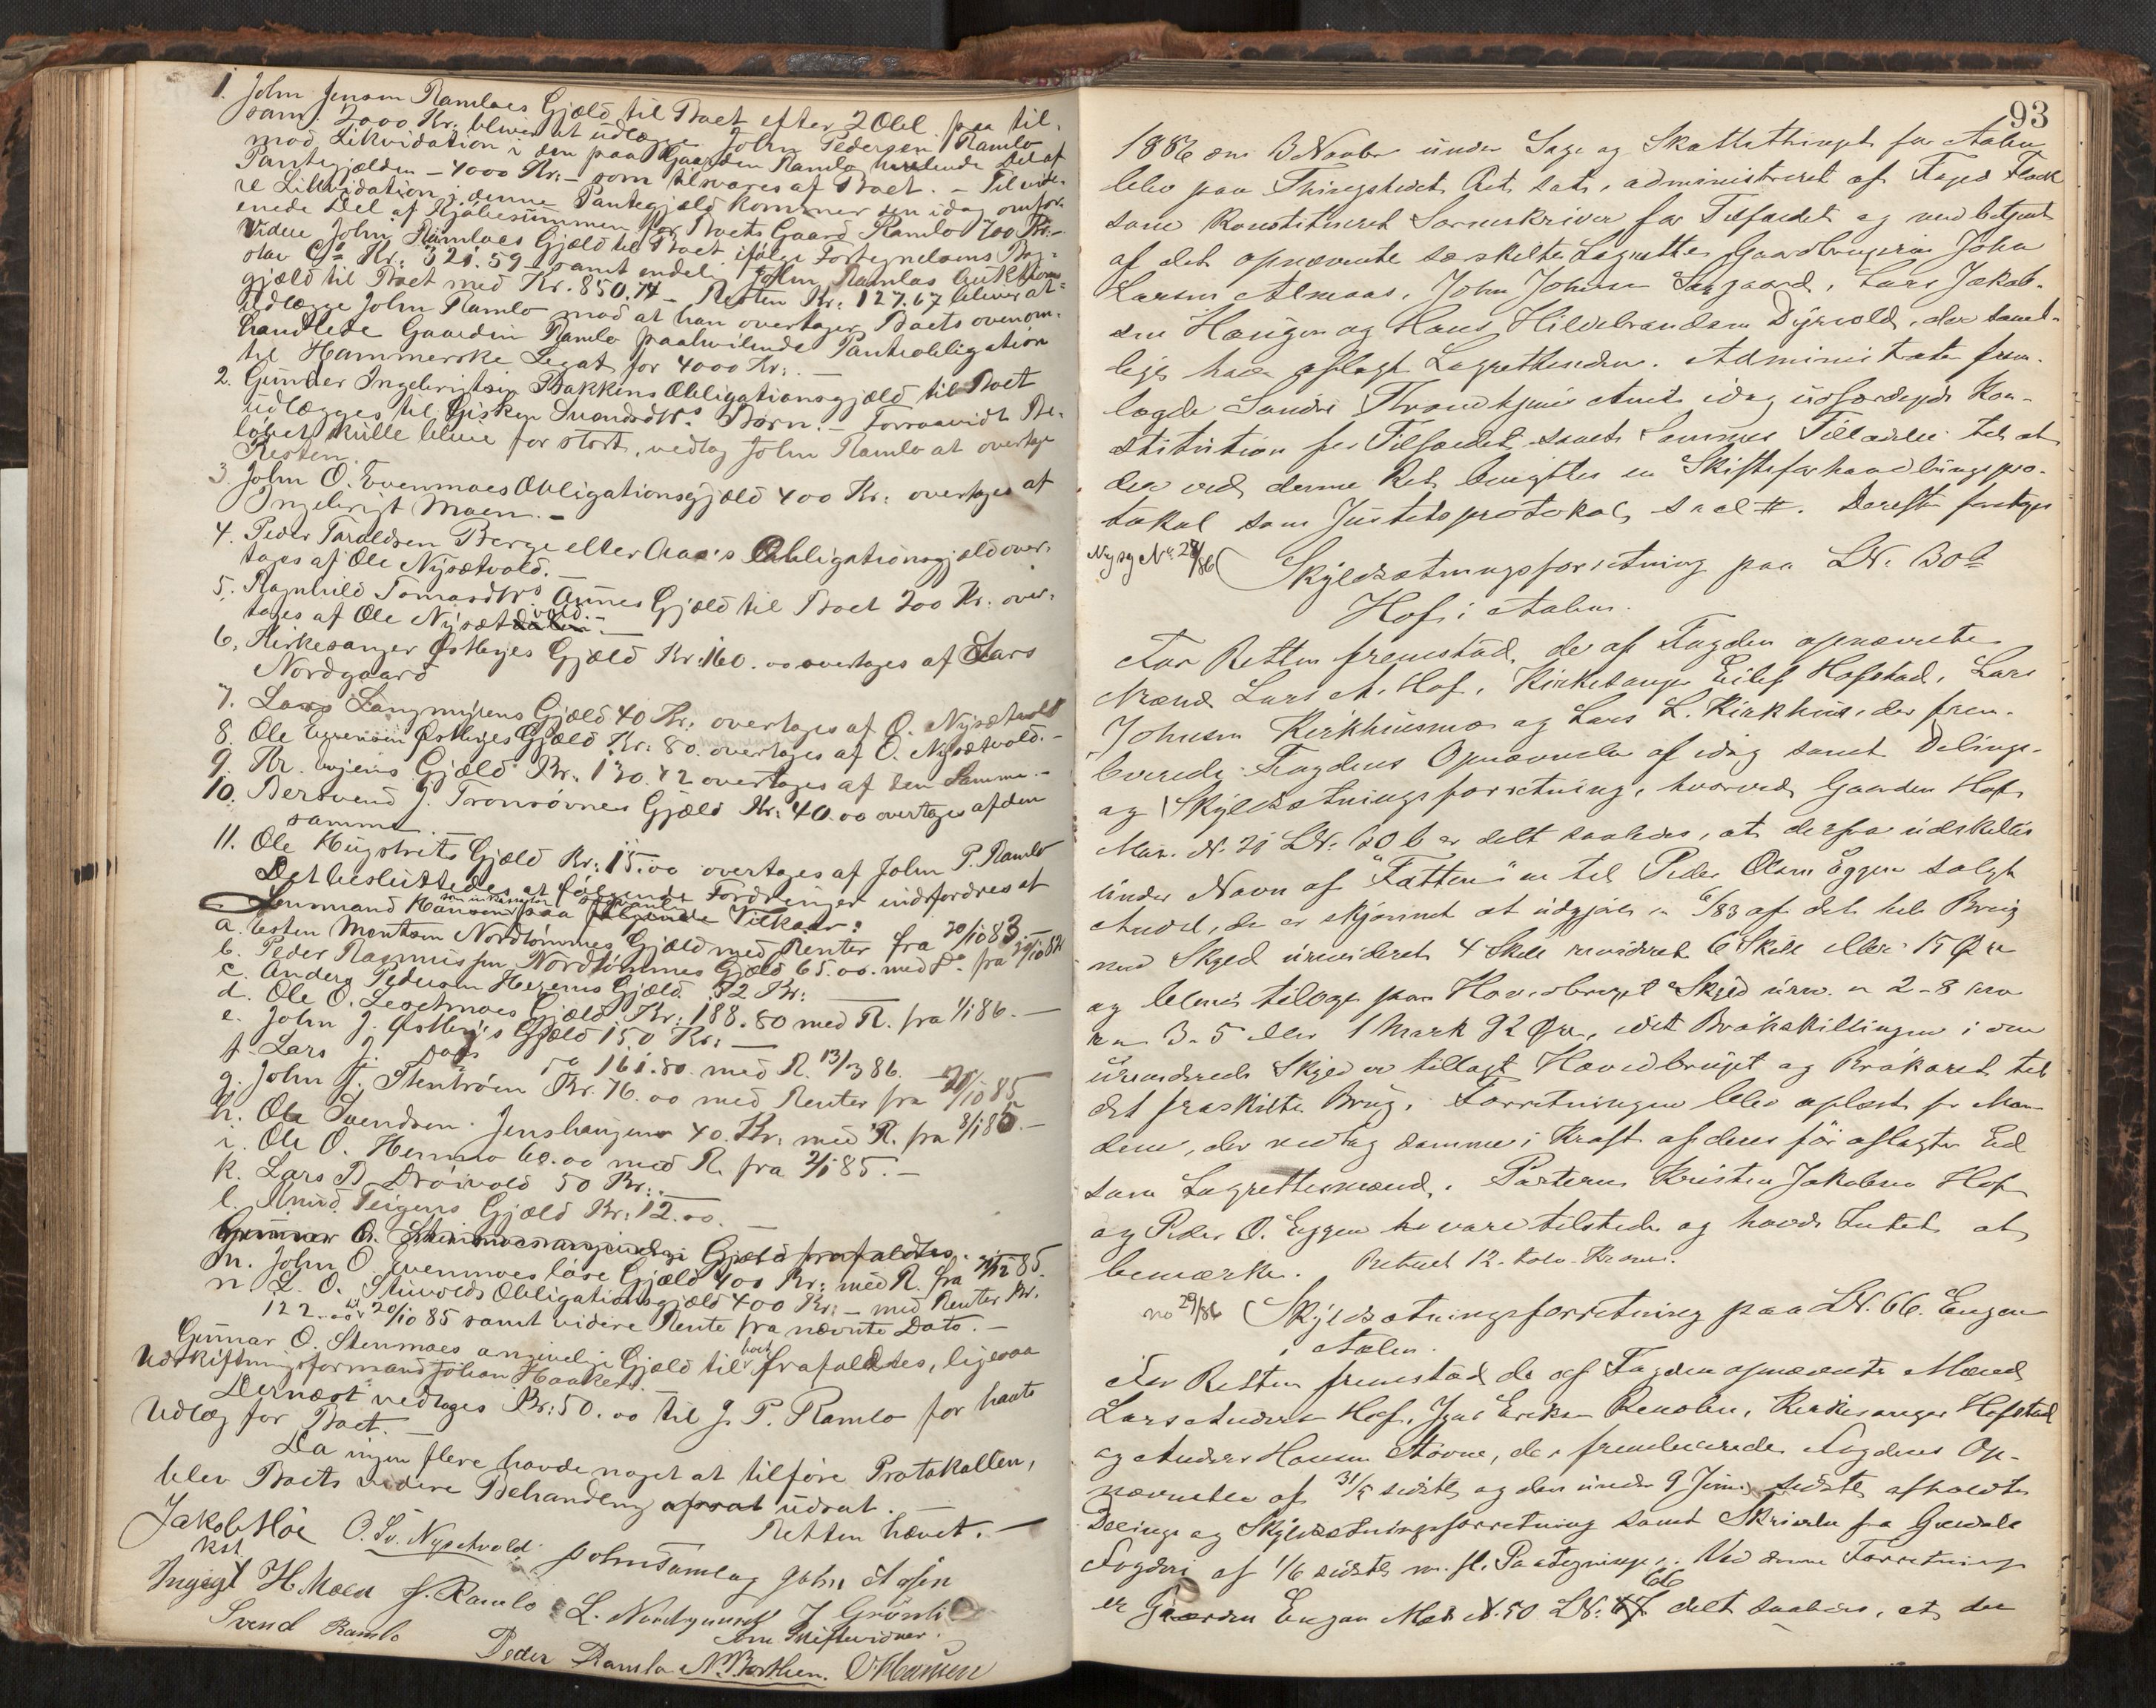 1. John Jensen Ramloes Gjæld til Boet efter 2 Obl. paa til-
sam. 2000 Kr. bliver at udlægge John Pedersen Ramlo
mod Likvidation i den paa Gaarden Ramlo hvilende Del af
Pantegjælden - 4000 Kr. - som tilsvares af Boet. - Til vide-
re Likvidation i denne Pantegjæld kommer den idag omfor-
enede Del af Kjøbesummen for Boets Gaard Ramlo 700 Kr. -
Videre John Ramloes Gjæld til Boet ifølge Fortegnelsens Bog-
stav C Kr. 321.59 - samt endelig John Ramlos Auktions-
gjæld til Boet med Kr. 850.74 - Resten Kr. 127.67 bliver at
udlægge John Ramlo mod at han overtager Boets ovenom-
handlede Gaarden Ramlo paahvilende Panteobligation
til Hammerske Legat for 4000 Kr. -
2. Gunder Ingebrigtsen Bakkens Obligationsgjæld til Boet
udlægges til Gisken Svendsdtrs Børn. - Forsaavidt Be-
løbet skulle blive for stort, vedtog John Ramlo at overtage
Resten.
3. John O. Evenmoes Obligationsgjæld 400 Kr. overtages af
Ingebrigt Moen. -
4. Peder Taraldsen Berge eller Aas's Obligationsgjæld over-
tages af Ole Nysætvold. -
5. Ragnhild Tomasdtrs Aunes Gjæld til Boet 200 Kr. over-
tages af Ole Nysætvold. -
6. Kirkesanger Østbyes Gjæld Kr. 160.00 overtages af Lars
Nordgaard
7. Lars Langmyrens Gjæld 40 Kr. overtages af O. Nysætvold
8. Ole Østbyes Gjæld Kr. 80. overtages af O. Nysætvold. -
9. Kr. Gjæld Kr. 130.42 overtages af den Samme. -
10. Bersvend J. Tronsøvnes Gjæld Kr. 40.00 overtages af den
samme.
11. Ole Gjæld Kr. 15.00 overtages af John P. Ramlo
Det besluttedes at følgende Fordringer indfordres af
Lensmand Hansen paa følgende Vilkaar:
a. Esten Mortsen Nordtømmes Gjæld med Renter fra 20/10 83. -
b. Peder Rasmussen Nordtømmes Gjæld 65.00. med Do fra 20/10 84
c. Anders Pedersen Gjæld 72 Kr. -
d. Ole O. Gjæld Kr. 188.80 med R. fra 1/1 86. -
e. John J. Østbyes Gjæld 150 Kr. -
f. Lars J. Do 161.80. med R. 13/3 86. -
g. John J. Stentrøen Kr. 76.00 med Renter fra 20/10 85
h. Ole Svendsen Jenshaugens 40. Kr. med R. fra 8/1 85. -
i. Ole O. Hemmo 60.00 med R. fra 2/1 85. -
k. Lars B Drøivold 50 Kr. -
l. Knud Teigens Gjæld Kr. 12.00. -
Gunnar O. Gjæld frafaldtes.
m. John O. Evenmoes løse Gjæld 400 Kr. med R. fra 31/12 85.
n. L. O. Obligationsgjæld 400 Kr. - med Renter Kr.
122.00 til 20/10 85 samt videre Rente fra nævnte Dato. -
Gunnar O. Stenmoes angivelige Gjæld til Boet frafaldtes, ligesaa
Udskiftningsformand Johan Haakens.
Dernæst vedtoges Kr. 50.00 til J. P. Ramlo for havte
Udlæg for Boet. -
Da ingen flere havde noget at tilføre Protokollen,
blev Boets videre Behandling udsat. -
Retten hævet. -
Jakob Høe O. Sv. Nysetvold John Ramlo John
kst
H. Moen J. Ramlo L. Nordgaard J Grønli
Svend Ramlo som Skiftevidner.
Peder Ramlo N. Borthen. O Hansen
93
1886 den 3 Novbr under Sage og Skattethinget for Aalen
blev paa Thingstedet Ret sat, administreret af Foged Flock
som konstitueret Sorenskriver for Tilfældet og med betjent
af det opnævnte særskilte Lagrette: Gaardbrugerne John
Larsen Almaas, John Johnsen Søgaard, Lars Jakob-
sen Haugen og Hans Hildebrandsen Dyrvold, der samt-
lige have aflagt Lagretteseden. Administrator frem-
lagde Søndre Throndhjems Amts idag udfærdigede Kon-
stitution for Tilfældet samt Sammes Tilladelse til at
der ved denne Ret benyttes en Skifteforhandlingspro-
tokol som Justitsprotokol, s a c l #. Derefter foretoges
Ny sg No. 28/86 Skyldsætningsforretning paa LN. 30b
Hof i Aalen.
For Retten fremstod de af Fogden opnævnte
Mænd Lars A. Hof, Kirkesanger Eilif Hofstad, Lars
Johnsen Kirkhusmo og Lars L. Kirkhus, der frem-
leverede Fogdens Opnævnelse af idag samt Delings-
og Skyldsætningsforretning, hvorved Gaarden Hof
Mat. N. 21 LN. 30 b er delt saaledes, at derfra udskilles
under Navn af "Fatten" en til Peder Olsen Eggen solgt
Andel, der er skjønnet at udgjøre 6/83 af det hele Brug
med Skyld urevideret 4 Skill. revideret 6 Skill. eller 15 Øre
og bliver tilbage paa Hovedbruget Skyld urev. 2-8 rev.
3-5 eller 1 Mark 92 Øre, idet Brøkskillingen i den
urevidered Skyld er tillagt Hovedbruget og Brøkøret til
det fraskilte Brug. Forretningen blev oplæst for Mæn-
dene, der vedtog samme i Kraft af deres før aflagte Ed
som Lagrettesmænd. Parterne Kristen Jakobsen Hof
og Peder O. Eggen vare tilstede og havde Intet at
bemærke. Betalt 12. tolv Kroner.
no 29/86 Skyldsætningsforretning paa LN. 66. Engan
i Aalen.
For Retten fremstod de af Fogden opnævnte Mænd
Lars Anders. Hof, Jens Eriksen Renolen, Kirkesanger Hofstad
og Anders Hansen Aavne, der fremleverede Fogdens Op-
nævnelse af 31/5 sidste og den under 9 Juni sidste afholdte
Delings og Skyldsætningsforretning samt Skrivelse fra Guldals
Fogderi af 1/6 sidste m. fl. Paategninger. Ved denne Forretning
er Gaarden Engan Mat. N. 50 LN. 66 delt saaledes, at der